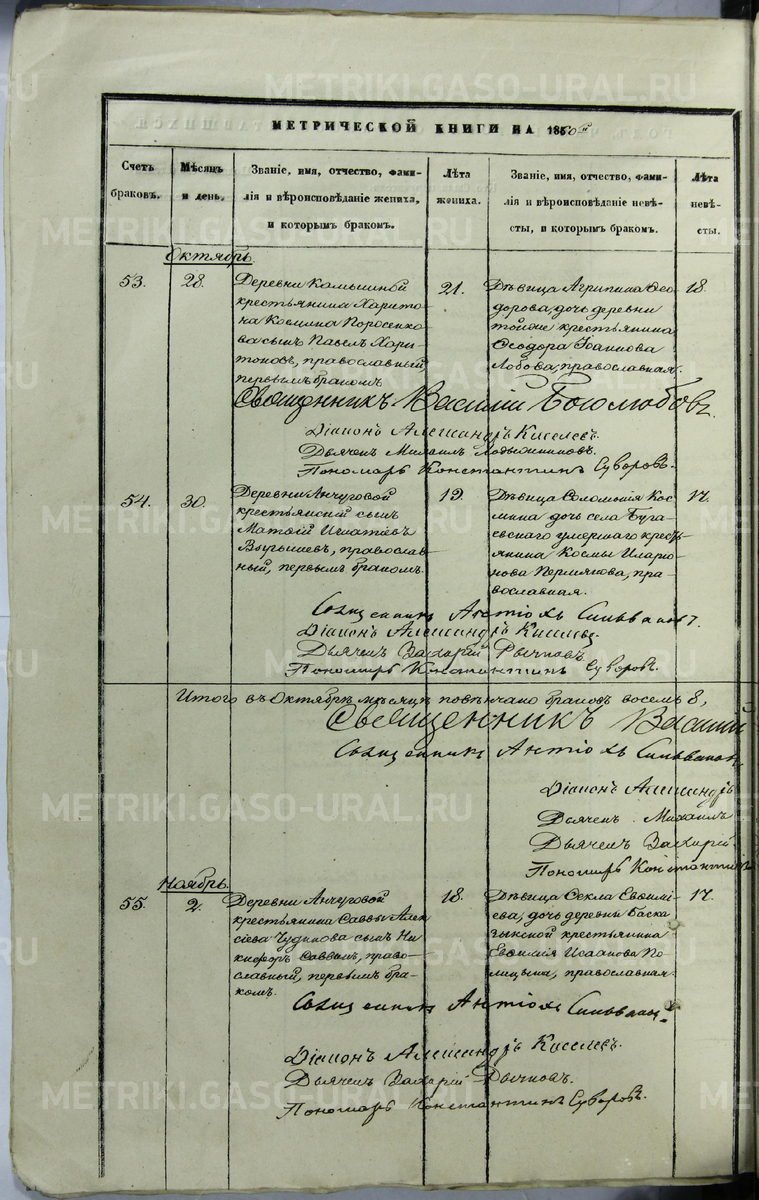 МЕТРИЧЕСКОЙ КНИГИ НА 1850й
Счетъ браковъ.
Мѣсяцъ и день.
Званіе, имя, отчество, фами-
лія и вѣроисповѣданіе жениха,
и которымъ бракомъ.
Лѣта жениха.
Званіе, имя, отчество, фами-
лія и вѣроисповѣданіе невѣ-
сты, и которымъ бракомъ.
Лѣта невѣ-
сты.
Октябрь
53. 28.
Деревни Камышной
крестьянина Харито-
на Космина Поросенко-
ва сынъ Павелъ Хари-
тоновъ, православный,
первымъ бракомъ
21.
Дѣвица Агрипина Ѳео-
дорова, дочь деревни
тойже крестьянина
Ѳеодора Іоаннова
Лобова, православная.
18.
Священникъ Василій Боголюбовъ.
Діаконъ Александръ Киселевъ.
Дьячекъ Михаилъ
Пономарь Константинъ Суворовъ.
54. 30.
Деревни Анчуговой
крестьянскій сынъ
Матѳій Игнатіевъ
православ-
ный, первымъ бракомъ.
19.
Дѣвица Соломонія Кос-
мина дочь села Буга-
евскаго умершаго кресть-
янина Космы Иларіо-
нова Пермякова, пра-
вославная.
17.
Священникъ Антіохъ Сильвановъ.
Діаконъ Александръ Киселевъ.
Дьячекъ Захарій Рычковъ.
Пономарь Константинъ Суворовъ.
Итого въ Октябрѣ мѣсяцѣ повѣнчано браковъ восемь 8,
Священникъ Василій
Священникъ Антіохъ Сильвановъ
Діаконъ Александръ
Дьячекъ Михаилъ
Дьячекъ Захарій
Пономарь Константинъ
Ноябрь.
55. 2.
Деревни Анчуговой
крестьянина Саввы Алек-
сіева Чудинова сынъ Ни-
кифоръ Саввинъ, право-
славный, первымъ бра-
комъ.
18.
Дѣвица Ѳекла Евѳимі-
ева, дочь деревни Баска-
зыкской крестьянина
Евѳимія Исаакова По-
лицына, православная.
17.
Священникъ Антіохъ Сильвановъ.
Діаконъ Александръ Киселевъ.
Дьячекъ Захарій Рычковъ.
Пономарь Константинъ Суворовъ.
METRIKI.GASO-URAL.RU